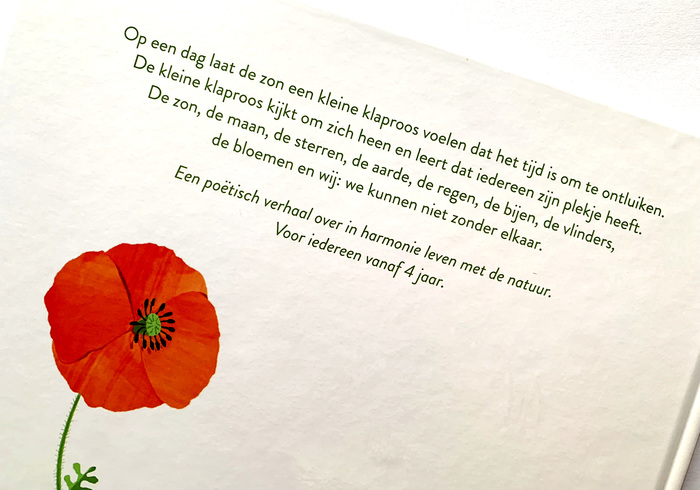 Op een dag laat de zon een kleine klaproos voelen dat het tijd is om te ontluiken.
De kleine klaproos kijkt om zich heen en leert dat iedereen zijn plekje heeft.
De zon, de maan, de sterren, de aarde, de regen, de bijen, de vlinders,
de bloemen en wij: we kunnen niet zonder elkaar.
Een poëtisch verhaal over in harmonie leven met de natuur.
Voor iedereen vanaf 4 jaar.